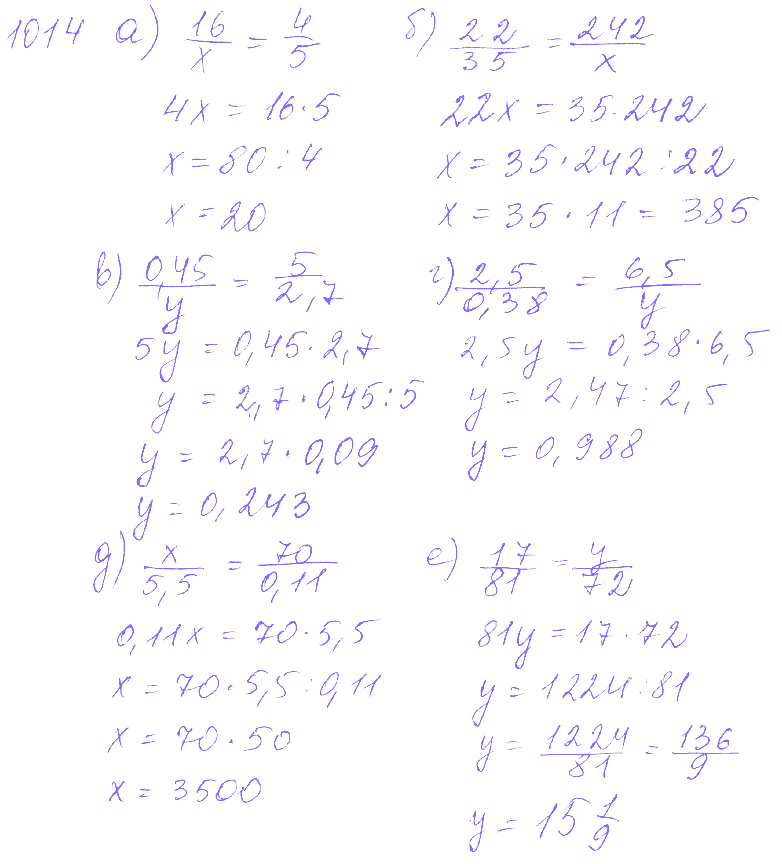 1014 а) 16/x = 4/5
4x = 16·5
x = 80:4
x = 20
б) 22/35 = 242/x
22x = 35·242
x = 35·242:22
x = 35·11 = 385
в) 0,45/y = 5/2,7
5y = 0,45·2,7
y = 2,7·0,45:5
y = 2,7·0,09
y = 0,243
г) 2,5/0,38 = 6,5/y
2,5y = 0,38·6,5
y = 2,47:2,5
y = 0,988
д) x/5,5 = 70/0,11
0,11x = 70·5,5
x = 70·5,5:0,11
x = 70·50
x = 3500
е) 17/81 = y/72
81y = 17·72
y = 1224:81
y = 1224/81 = 136/9
y = 15 1/9